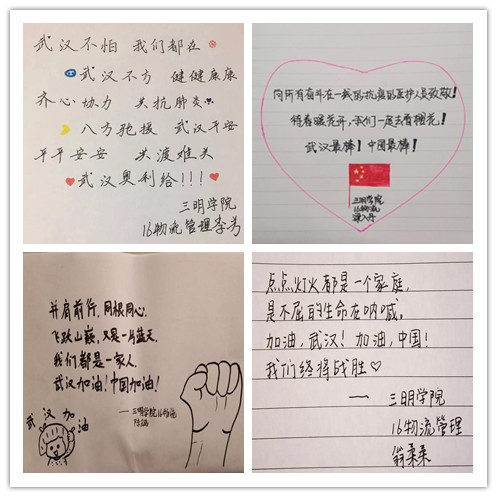 武汉不怕 我们都在
武汉不方 健健康康
齐心协力 共抗肺炎
八方驰援 武汉平安
平平安安 共渡难关
武汉奥利给!!!
三明学院
16物流管理李芳
向所有奋斗在一线的抗病的医护人员致敬!
待春暖花开,我们一起去看樱花!
武汉最棒!中国最棒!
三明学院
16物流
并肩前行,同根同心,
飞跃山巅,又是一片蓝天,
我们都是一家人,
武汉加油!中国加油!
武汉加油
点点灯火都是一个家庭,
是不屈的生命在呐喊。
加油,武汉!加油,中国!
我们终将战胜♡
— 三明学院
16物流管理
翁柔柔